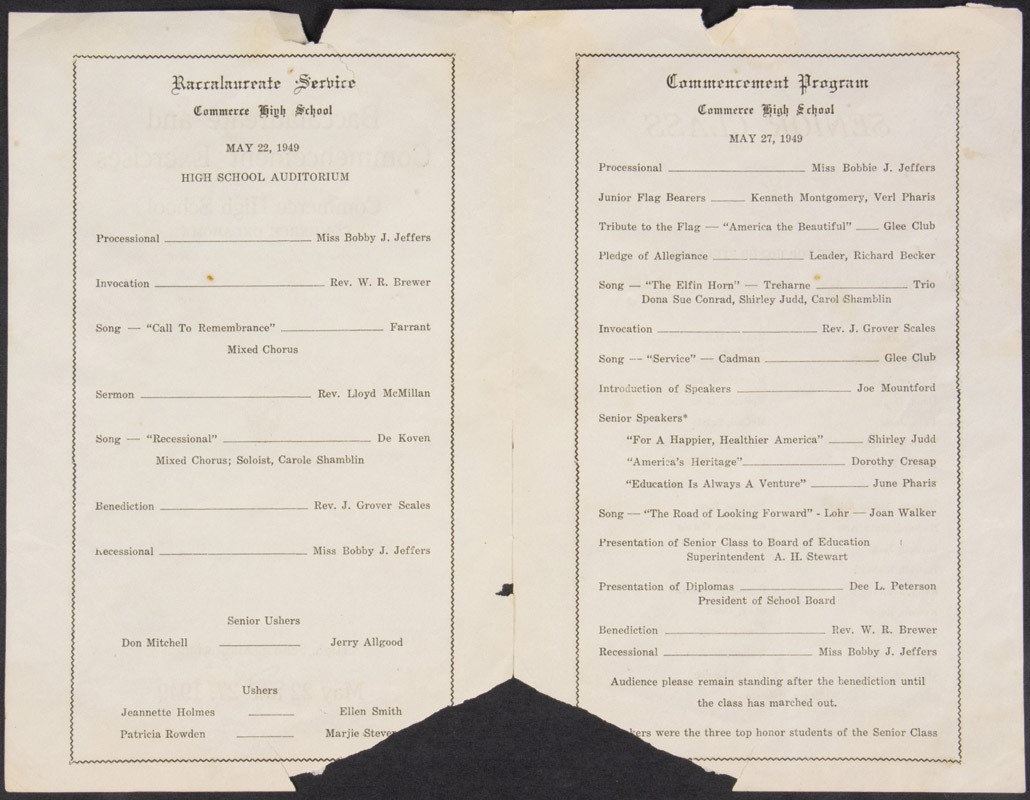 Baccalaureate Service
Commerce High School
MAY 22, 1949
HIGH SCHOOL AUDITORIUM
Processional ______ Miss Bobby J. Jeffers
Invocation ______ Rev. W. R. Brewer
Song — "Call To Remembrance" ______ Farrant
Mixed Chorus
Sermon ______ Rev. Lloyd McMillan
Song — "Recessional" ______ De Koven
Mixed Chorus; Soloist, Carole Shamblin
Benediction ______ Rev. J. Grover Scales
Recessional ______ Miss Bobby J. Jeffers
Senior Ushers
Don Mitchell ______ Jerry Allgood
Ushers
Jeannette Holmes ______ Ellen Smith
Patricia Rowden ______ Marjie
Commencement Program
Commerce High School
MAY 27, 1949
Processional ______ Miss Bobbie J. Jeffers
Junior Flag Bearers ______ Kenneth Montgomery, Verl Pharis
Tribute to the Flag — "America the Beautiful" ______ Glee Club
Pledge of Allegiance ______ Leader, Richard Becker
Song — "The Elfin Horn" — Treharne ______ Trio
Dona Sue Conrad, Shirley Judd, Carol Shamblin
Invocation ______ Rev. J. Grover Scales
Song — "Service" — Cadman ______ Glee Club
Introduction of Speakers ______ Joe Mountford
Senior Speakers*
"For A Happier, Healthier America" ______ Shirley Judd
"America's Heritage" ______ Dorothy Cresap
"Education Is Always A Venture" ______ June Pharis
Song — "The Road of Looking Forward" - Lohr — Joan Walker
Presentation of Senior Class to Board of Education
Superintendent A. H. Stewart
Presentation of Diplomas ______ Dee L. Peterson
President of School Board
Benediction ______ Rev. W. R. Brewer
Recessional ______ Miss Bobby J. Jeffers
Audience please remain standing after the benediction until
the class has marched out.
kers were the three top honor students of the Senior Class